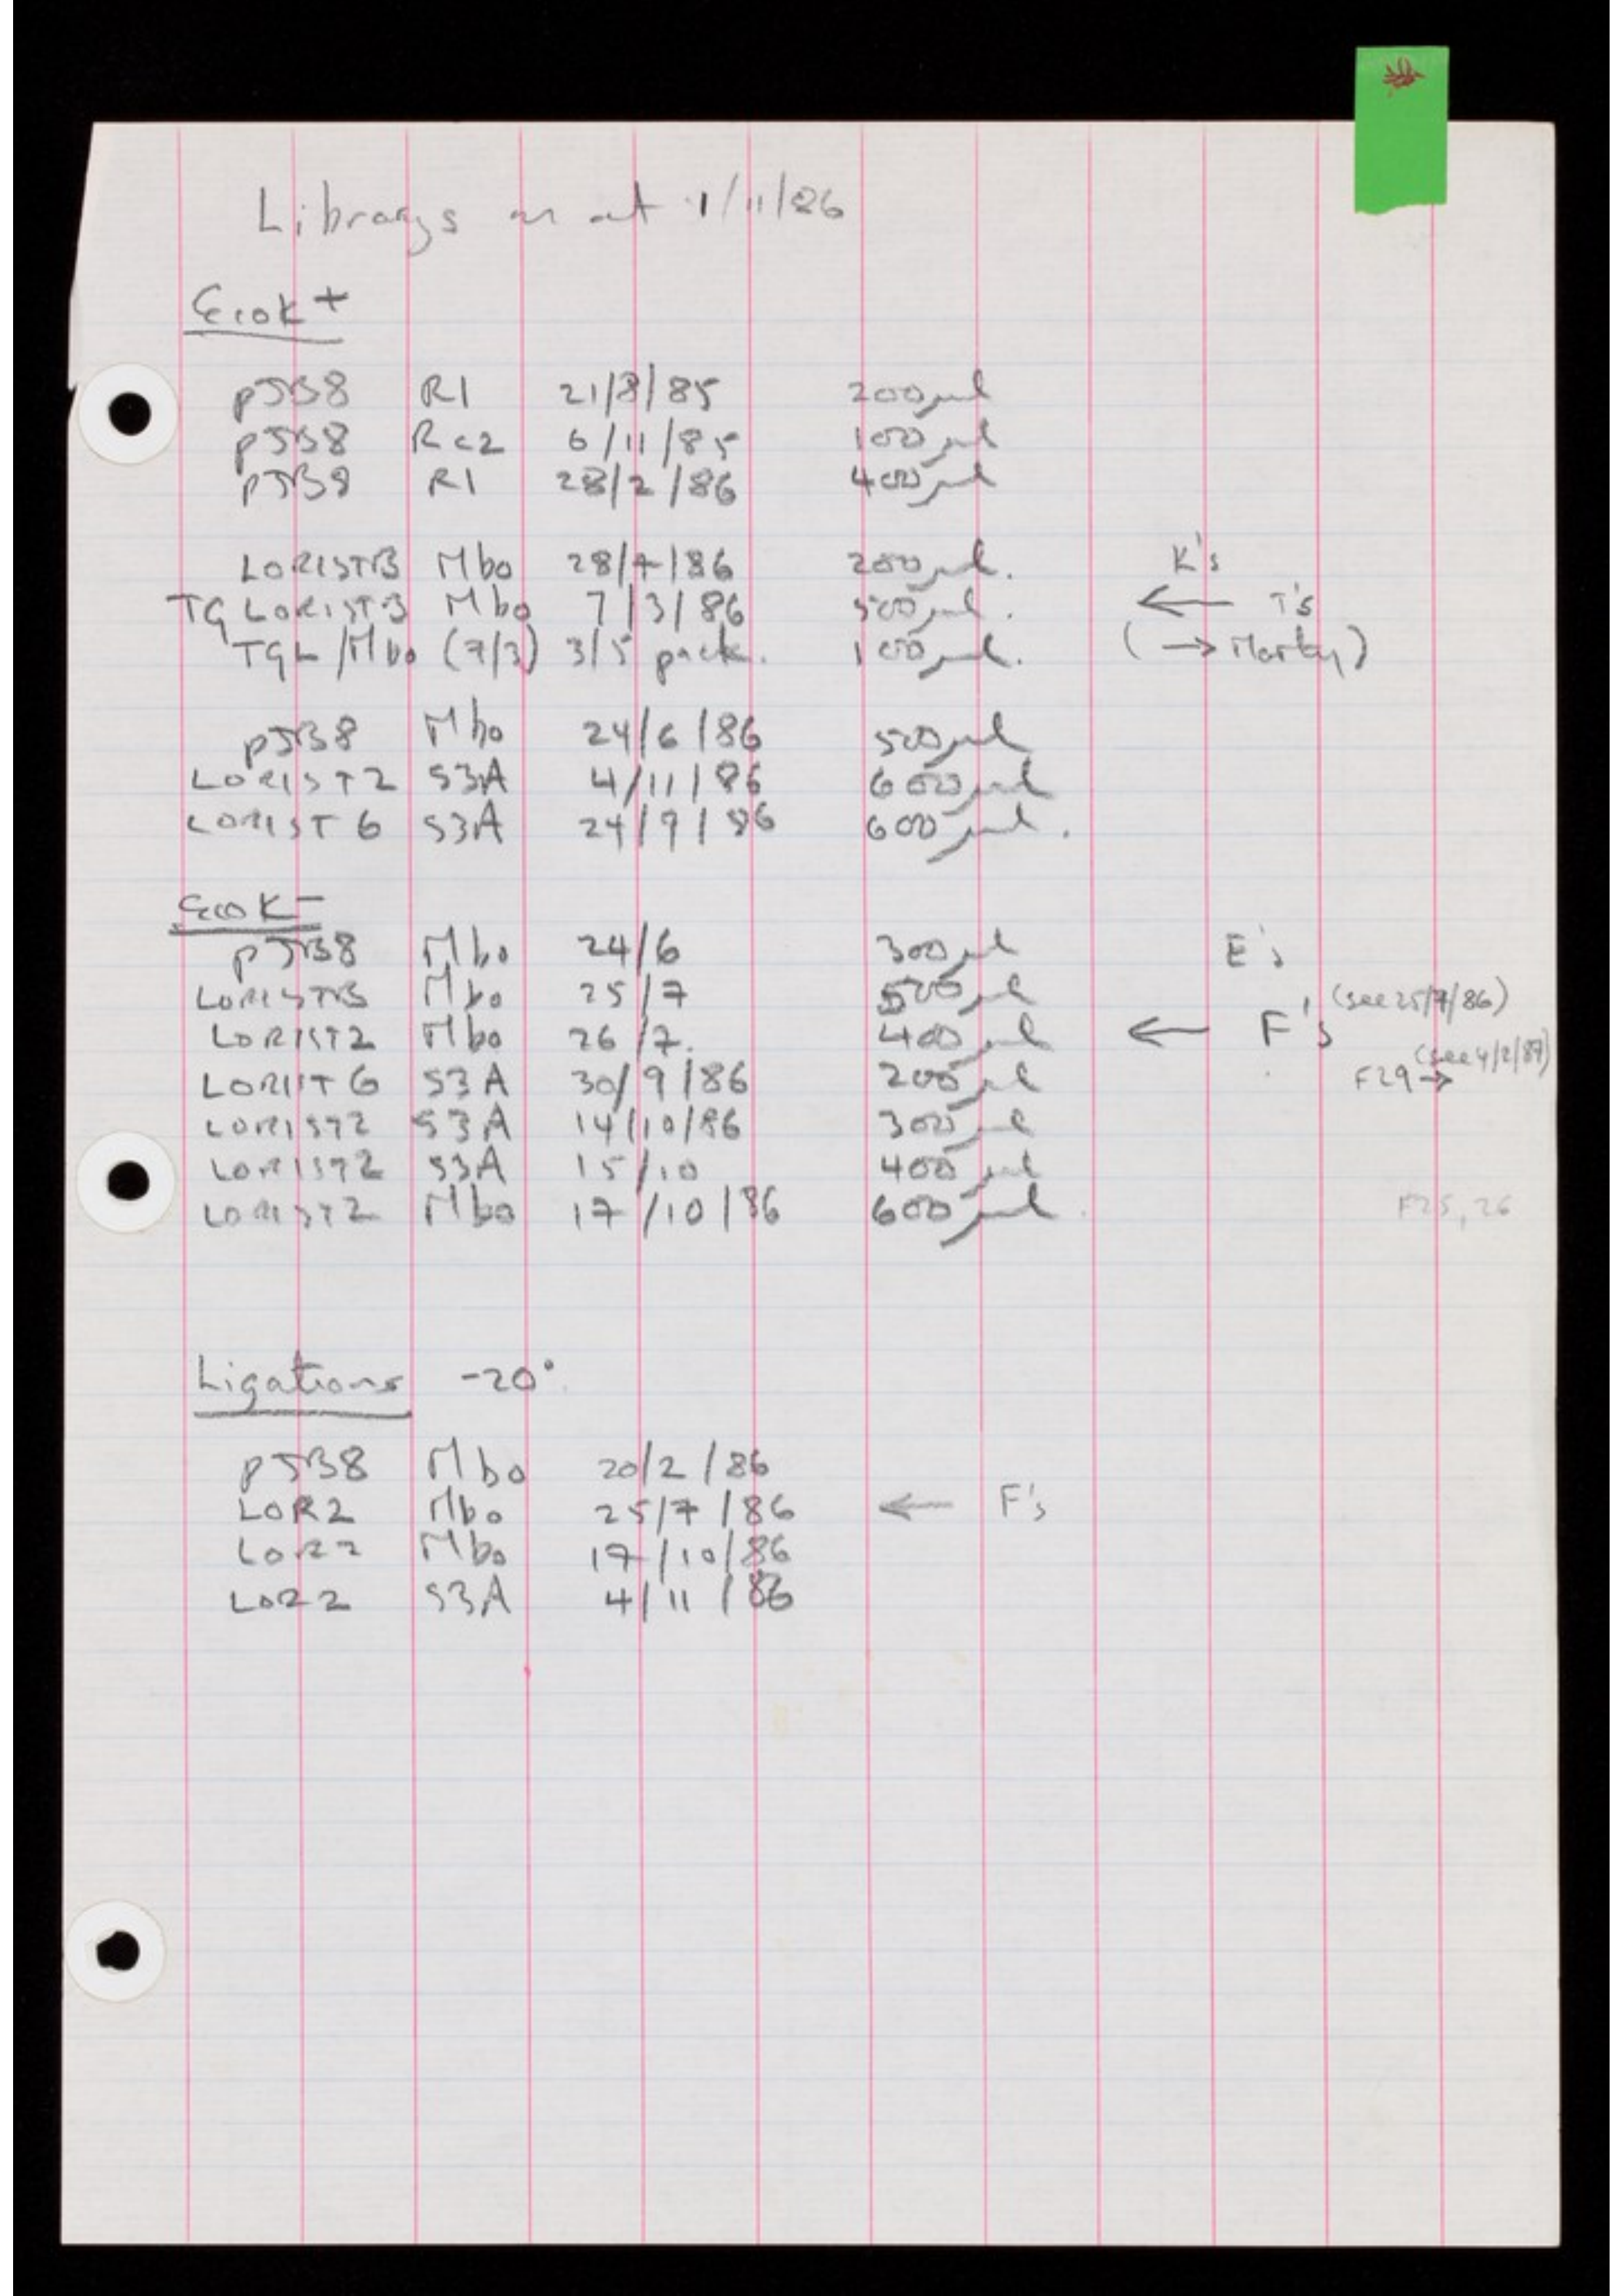 Librarys as at 1/11/86
EcoK+
pJB8 R1 21/8/85 200µl
pJB8 Rc2 6/11/85 100µl
pJB8 R1 28/2/86 400µl
LORISTB Mbo 28/7/86 200µl. K's
TG LORISTB Mbo 7/3/86 500µl. ← T's
TGL/Mbo (7/3) 3/5 pack. 100µl. (→ )
pJB8 Mbo 24/6/86 500µl
LORIST2 S3A 4/11/86 600µl
LORIST6 S3A 24/9/86 600µl.
EcoK-
pJB8 Mbo 24/6 300µl E's
LORISTB Mbo 25/7 500µl
LORIST2 Mbo 26/7. 400µl ← F's (see 25/7/86)
LORIST6 S3A 30/9/86 200µl F29→ (see 4/2/87)
LORIST2 S3A 14/10/86 300µl
LORIST2 S3A 15/10 400µl
LORIST2 Mbo 17/10/86 600µl. F25, 26
Ligations -20°
pJB8 Mbo 20/2/86
LOR2 Mbo 25/7/86 ← F's
LOR2 Mbo 17/10/86
LOR2 S3A 4/11/86